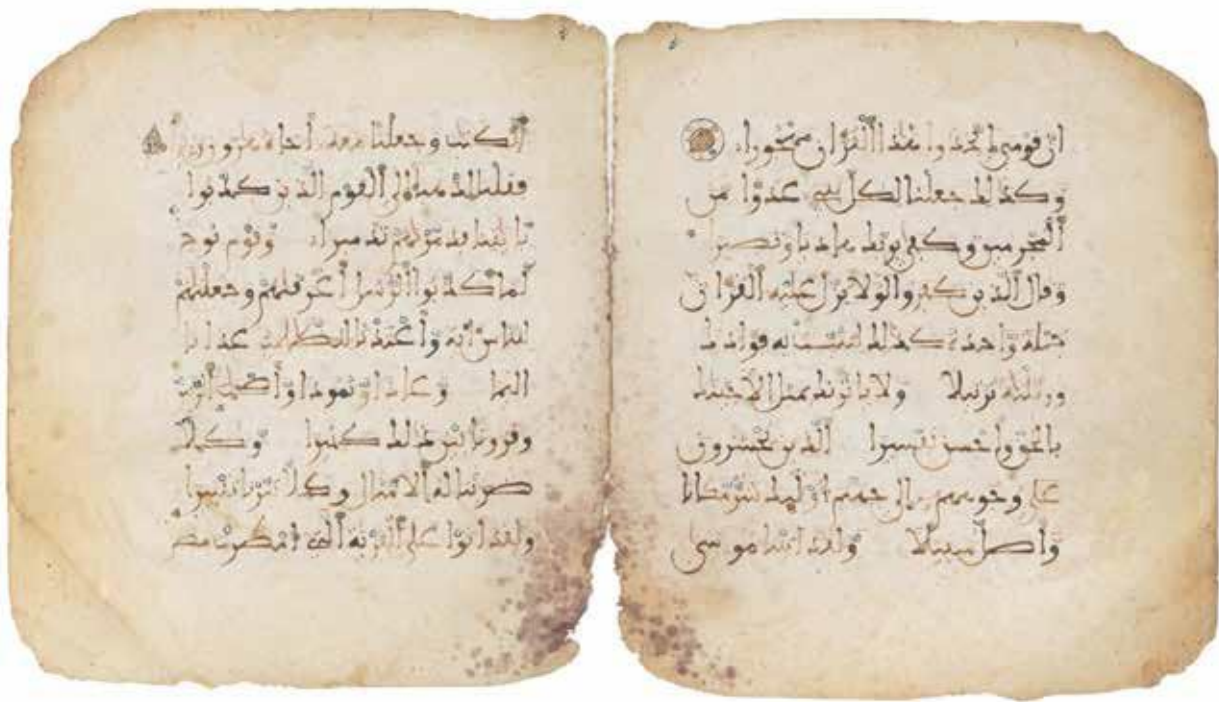 ان قومي اتخذوا هذا القران مهجورا
وكذلك جعلنا لكل نبي عدوا من
المجرمين وكفى بربك هاديا ونصيرا
وقال الذين كفروا لولا نزل عليه القران
جملة واحدة كذلك لنثبت به فوادك
ورتلنه ترتيلا ولا ياتونك بمثل الا جينك
بالحق واحسن تفسيرا الذين يحشرون
على وجوههم الى جهنم اوليك شر مكانا
واضل سبيلا ولقد اتينا موسى
الكتب وجعلنا معه اخاه هرون وزيرا
فقلنا اذهبا الى القوم الذين كذبوا
بايتنا فدمرنهم تدميرا وقوم نوح
لما كذبوا الرسل اغرقنهم وجعلنهم
للناس اية واعتدنا للظلمين عذابا
اليما وعادا وثمودا واصحب الرس
وقرونا بين ذلك كثيرا وكلا
ضربنا له الامثل وكلا تبرنا تتبيرا
ولقد اتوا على القرية التي امطرت مطر